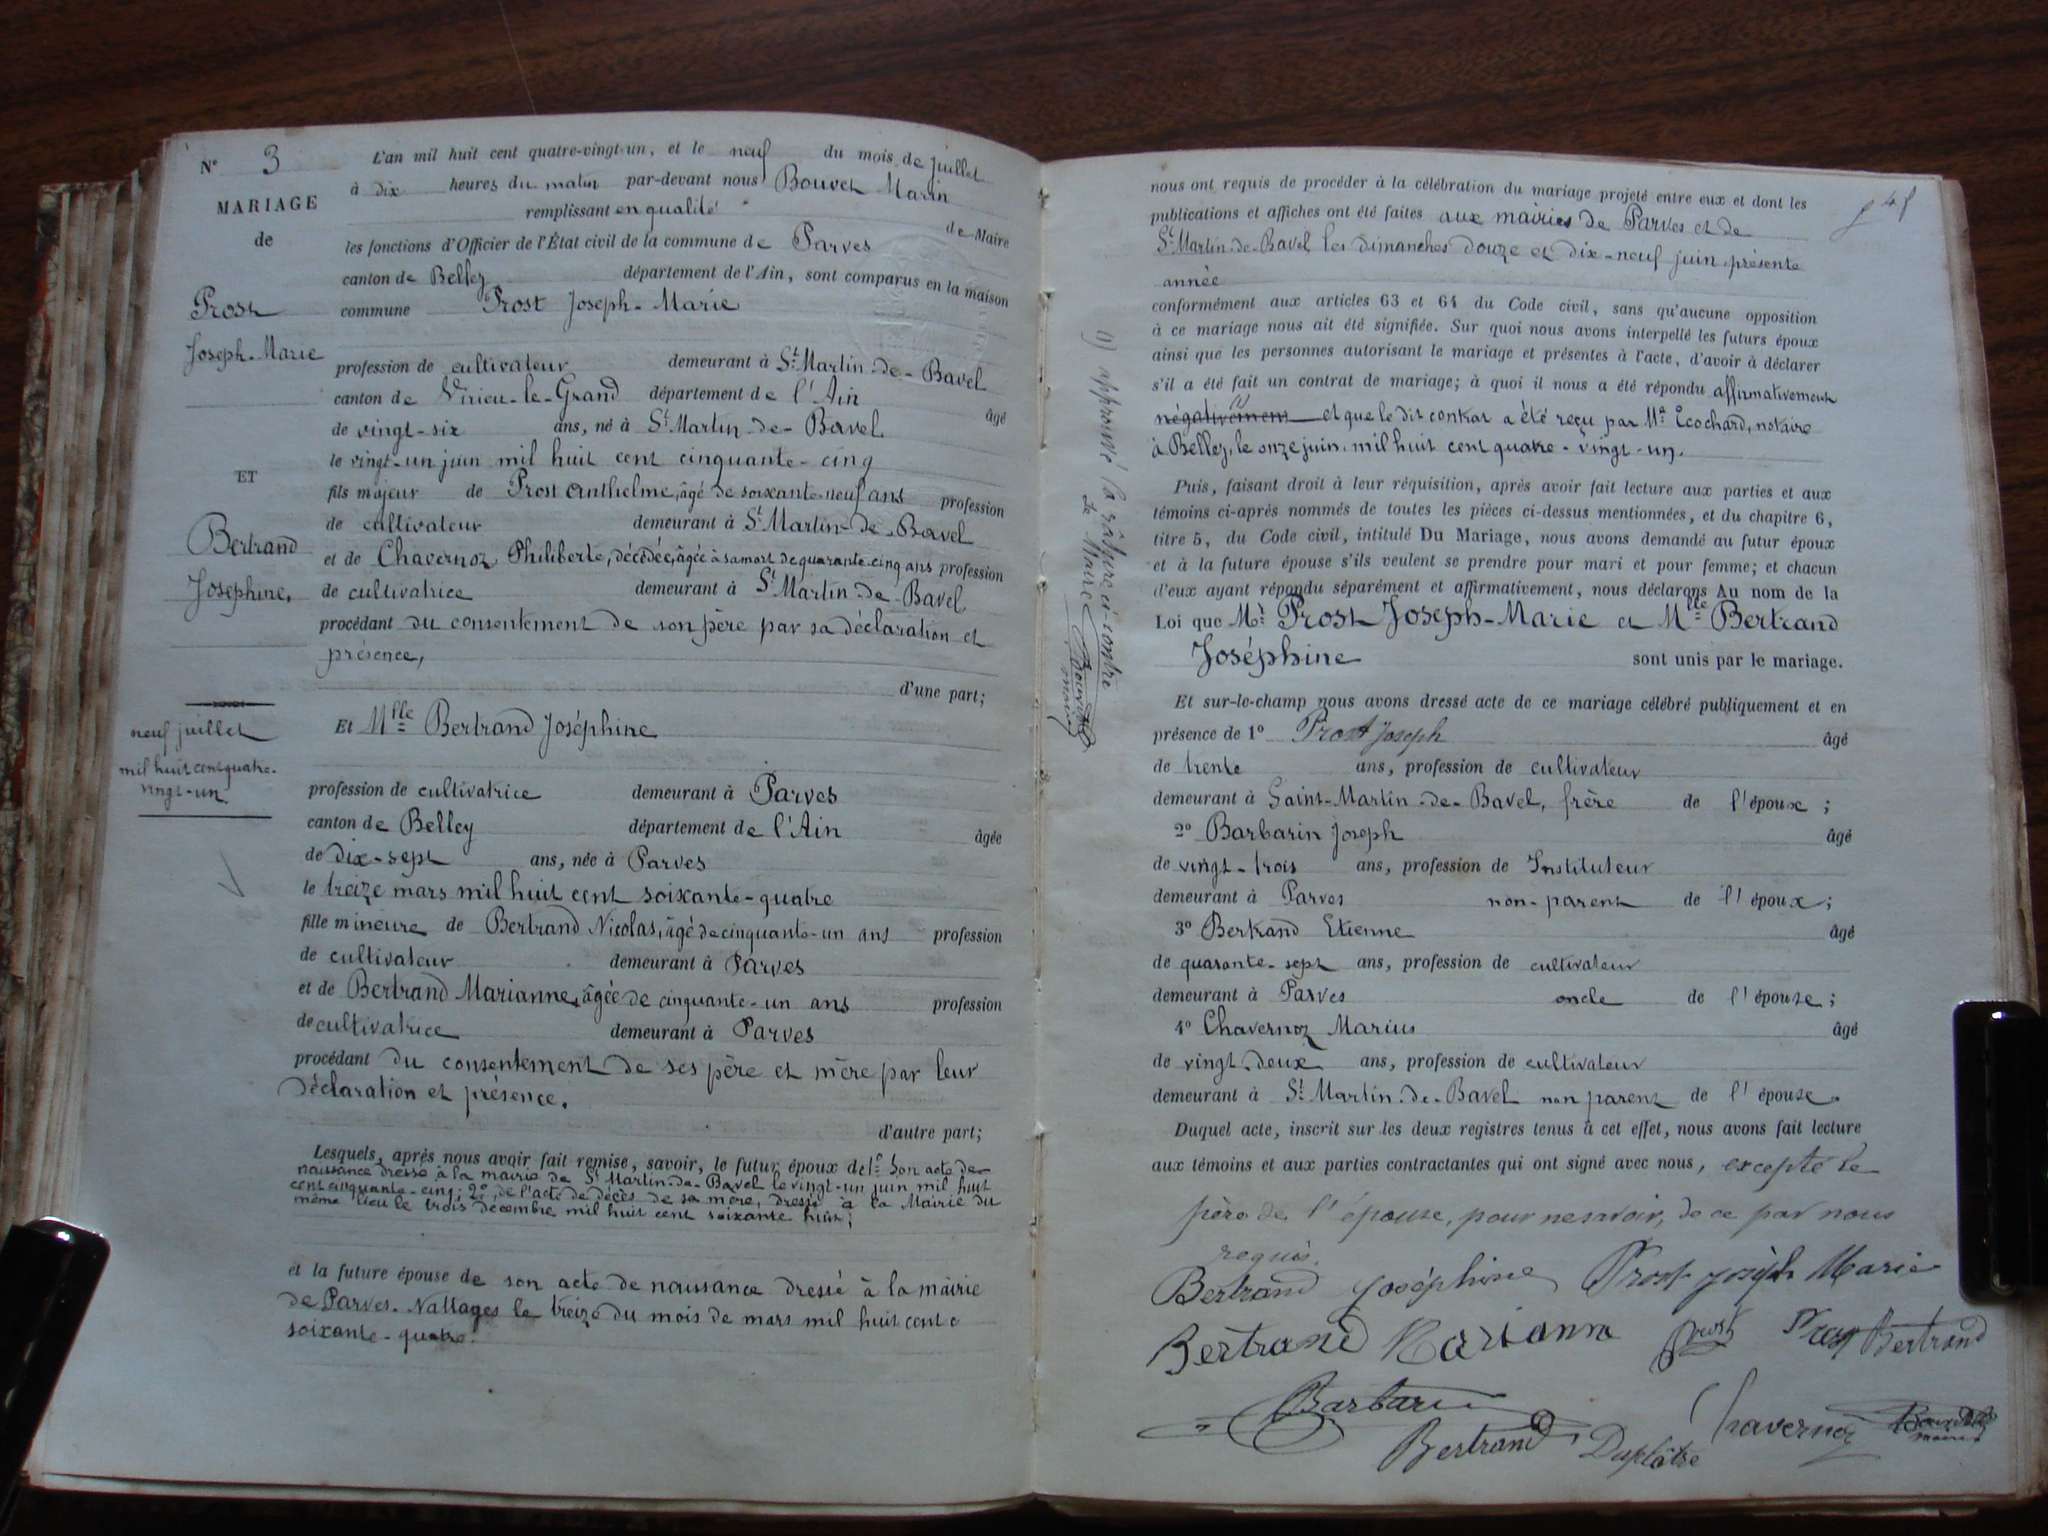 N° 3
MARIAGE
de
Prost
Joseph-Marie
ET
Bertrand
Joséphine,
neuf juillet
mil huit cent quatre-
vingt-un.
L'an mil huit cent quatre-vingt-un, et le neuf du mois de juillet
à dix heures du matin par-devant nous Bouvet Marin
remplissant en qualité de Maire
les fonctions d'Officier de l'État civil de la commune de Parves
canton de Belley département de l'Ain, sont comparus en la maison
commune Prost Joseph-Marie
profession de cultivateur demeurant à St Martin-de-Bavel
canton de Virieu-le-Grand département de l'Ain âgé
de vingt-six ans, né à St Martin-de-Bavel
le vingt-un juin mil huit cent cinquante-cinq
fils majeur de Prost Anthelme, âgé de soixante-neuf ans profession
de cultivateur demeurant à St Martin-de-Bavel
et de Chavernoz Philiberte, décédée, âgée à sa mort de quarante-cinq ans profession
de cultivatrice demeurant à St Martin-de-Bavel
procédant du consentement de son père par sa déclaration et
présence,
d'une part;
Et Mlle Bertrand Joséphine
profession de cultivatrice demeurant à Parves
canton de Belley département de l'Ain âgée
de dix-sept ans, née à Parves
le treize mars mil huit cent soixante-quatre
fille mineure de Bertrand Nicolas, âgé de cinquante-un ans profession
de cultivateur demeurant à Parves
et de Bertrand Marianne, âgée de cinquante-un ans profession
de cultivatrice demeurant à Parves
procédant du consentement de ses père et mère par leur
déclaration et présence.
d'autre part;
Lesquels, après nous avoir fait remise, savoir, le futur époux de 1° Son acte de
naissance dressé à la mairie de St Martin-de-Bavel le vingt-un juin mil huit
cent cinquante-cinq; 2° de l'acte de décès de sa mère, dressé à la Mairie du
même lieu le trois décembre mil huit cent soixante huit;
et la future épouse de son acte de naissance dressé à la mairie
de Parves-Nattages le treize du mois de mars mil huit cent
soixante-quatre.
nous ont requis de procéder à la célébration du mariage projeté entre eux et dont les
publications et affiches ont été faites aux mairies de Parves et de
St Martin-de-Bavel les dimanches douze et dix-neuf juin présente
année
conformément aux articles 63 et 64 du Code civil, sans qu'aucune opposition
à ce mariage nous ait été signifiée. Sur quoi nous avons interpellé les futurs époux
ainsi que les personnes autorisant le mariage et présentes à l'acte, d'avoir à déclarer
s'il a été fait un contrat de mariage; à quoi il nous a été répondu affirmativement
négativement et que le dit contrat a été reçu par Me Ecochard, notaire
à Belley, le onze juin mil huit cent quatre-vingt-un.
Puis, faisant droit à leur réquisition, après avoir fait lecture aux parties et aux
témoins ci-après nommés de toutes les pièces ci-dessus mentionnées, et du chapitre 6,
titre 5, du Code civil, intitulé Du Mariage, nous avons demandé au futur époux
et à la future épouse s'ils veulent se prendre pour mari et pour femme; et chacun
d'eux ayant répondu séparément et affirmativement, nous déclarons Au nom de la
Loi que Mr Prost Joseph-Marie et Mlle Bertrand
Joséphine sont unis par le mariage.
Et sur-le-champ nous avons dressé acte de ce mariage célébré publiquement et en
présence de 1° Prost Joseph âgé
de trente ans, profession de cultivateur
demeurant à Saint-Martin-de-Bavel, frère de l'épouse;
2° Barbarin Joseph âgé
de vingt-trois ans, profession de Instituteur
demeurant à Parves non-parent de l'époux;
3° Bertrand Etienne âgé
de quarante-sept ans, profession de cultivateur
demeurant à Parves oncle de l'épouse;
4° Chavernoz Marius âgé
de vingt-deux ans, profession de cultivateur
demeurant à St Martin-de-Bavel non parent de l'épouse.
Duquel acte, inscrit sur les deux registres tenus à cet effet, nous avons fait lecture
aux témoins et aux parties contractantes qui ont signé avec nous, excepté le
père de l'épouse, pour ne savoir, de ce par nous
requis.
Bertrand Joséphine Prost Joseph Marie
Bertrand Marianne Prost Prost Bertrand
Barbarin
Bertrand Duplâtre Chavernoz Bouvet
maire
(1) approuvé la râture ci-contre
Le Maire
Bouvet
maire